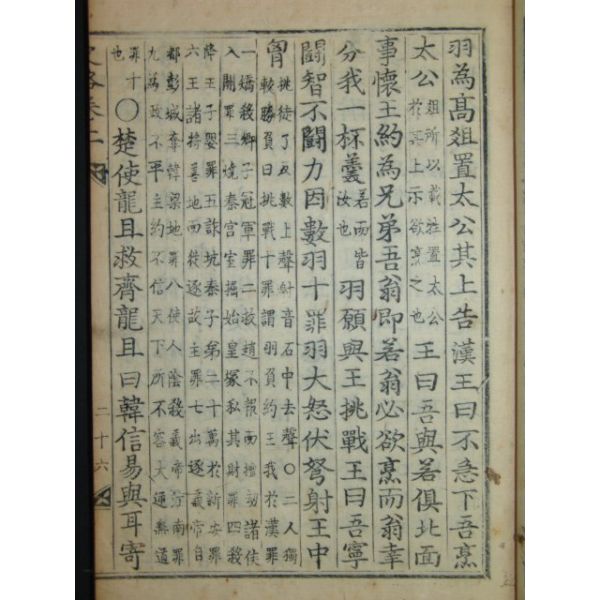 羽為髙俎置太公其上告漢王曰不急下吾烹
太公俎所以載牲置太公於其上示欲烹之也王曰吾與若俱北面
事懷王約為兄弟吾翁即若翁必欲烹而翁幸
分我一杯羹若而皆汝也羽願與王挑戰王曰吾寧
闘智不闘力因數羽十罪羽大怒伏弩射王中
胷挑徒了反數上聲射音石中去聲○二人獨較勝負曰挑戰十罪謂羽負約王我於漢罪
一矯殺卿子冠軍罪二救趙不報而擅劫諸侯入關罪三燒秦宫室掘始皇塚私其財罪四殺
降王子嬰罪五詐坑秦子弟二十萬於新安罪六王諸將善地而徙逐故主罪七出逐義帝自
都彭城奪韓梁地罪八使人陰殺義帝江南罪九為政不平主約不信天下所不容大逆無道
罪十也○楚使龍且救齊龍且曰韓信易與耳寄
史略卷二
二十六